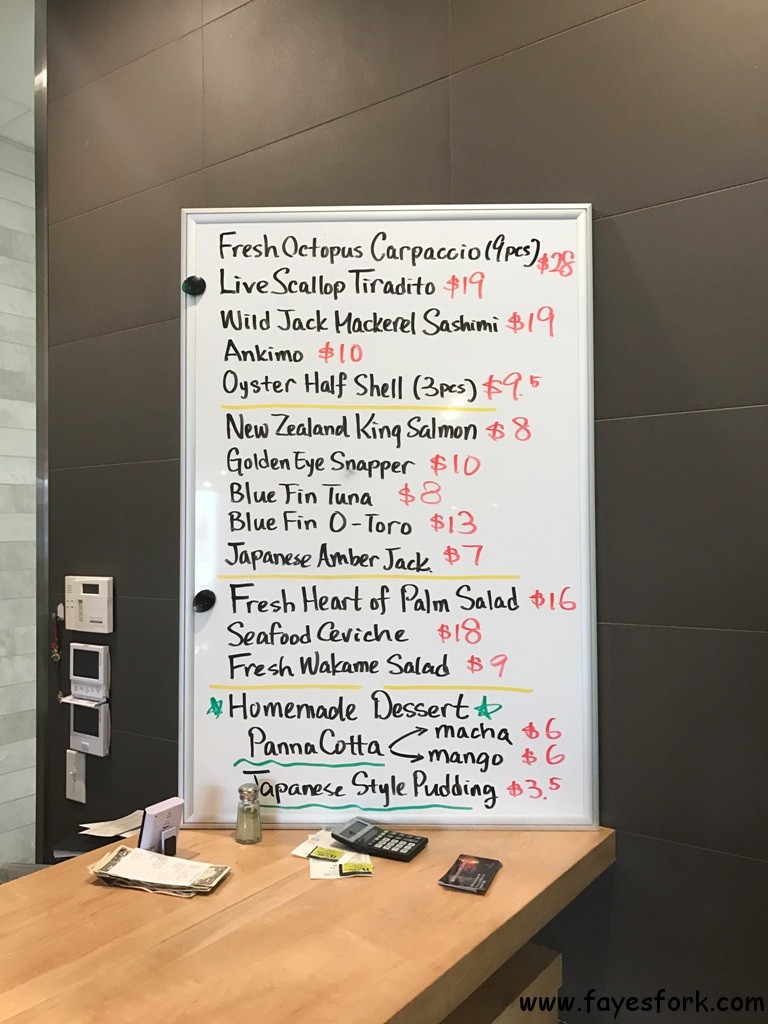 Fresh Octopus Carpaccio (9pcs) $28
Live Scallop Tiradito $19
Wild Jack Mackerel Sashimi $19
Ankimo $10
Oyster Half Shell (3pcs) $9.5
New Zealand King Salmon $8
Golden Eye Snapper $10
Blue Fin Tuna $8
Blue Fin O-Toro $13
Japanese Amber Jack $7
Fresh Heart of Palm Salad $16
Seafood Ceviche $18
Fresh Wakame Salad $9
Homemade Dessert
macha $6
Panna Cotta
mango $6
Japanese Style Pudding $3.5
www.fayesfork.com